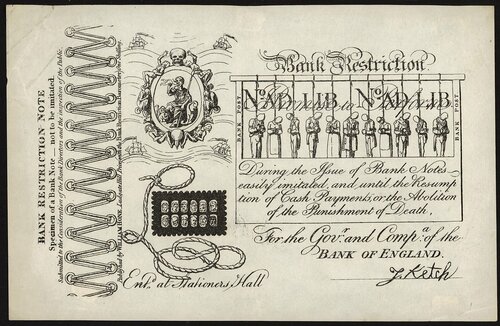 BANK RESTRICTION NOTE
Specimen of a Bank Note — not to be imitated.
Submitted to the Consideration of the Bank Directors and the inspection of the Public.
Bank Restriction
No. AD. LIB. No. AD. LIB.
BANK POST
BANK POST
During the Issue of Bank Notes
easily imitated, and until the Resump
tion of Cash Payments, or the Abolition
of the Punishment of Death,
For the Govr. and Compa. of the
BANK OF ENGLAND.
J. Ketch
Entd. at Stationers' Hall